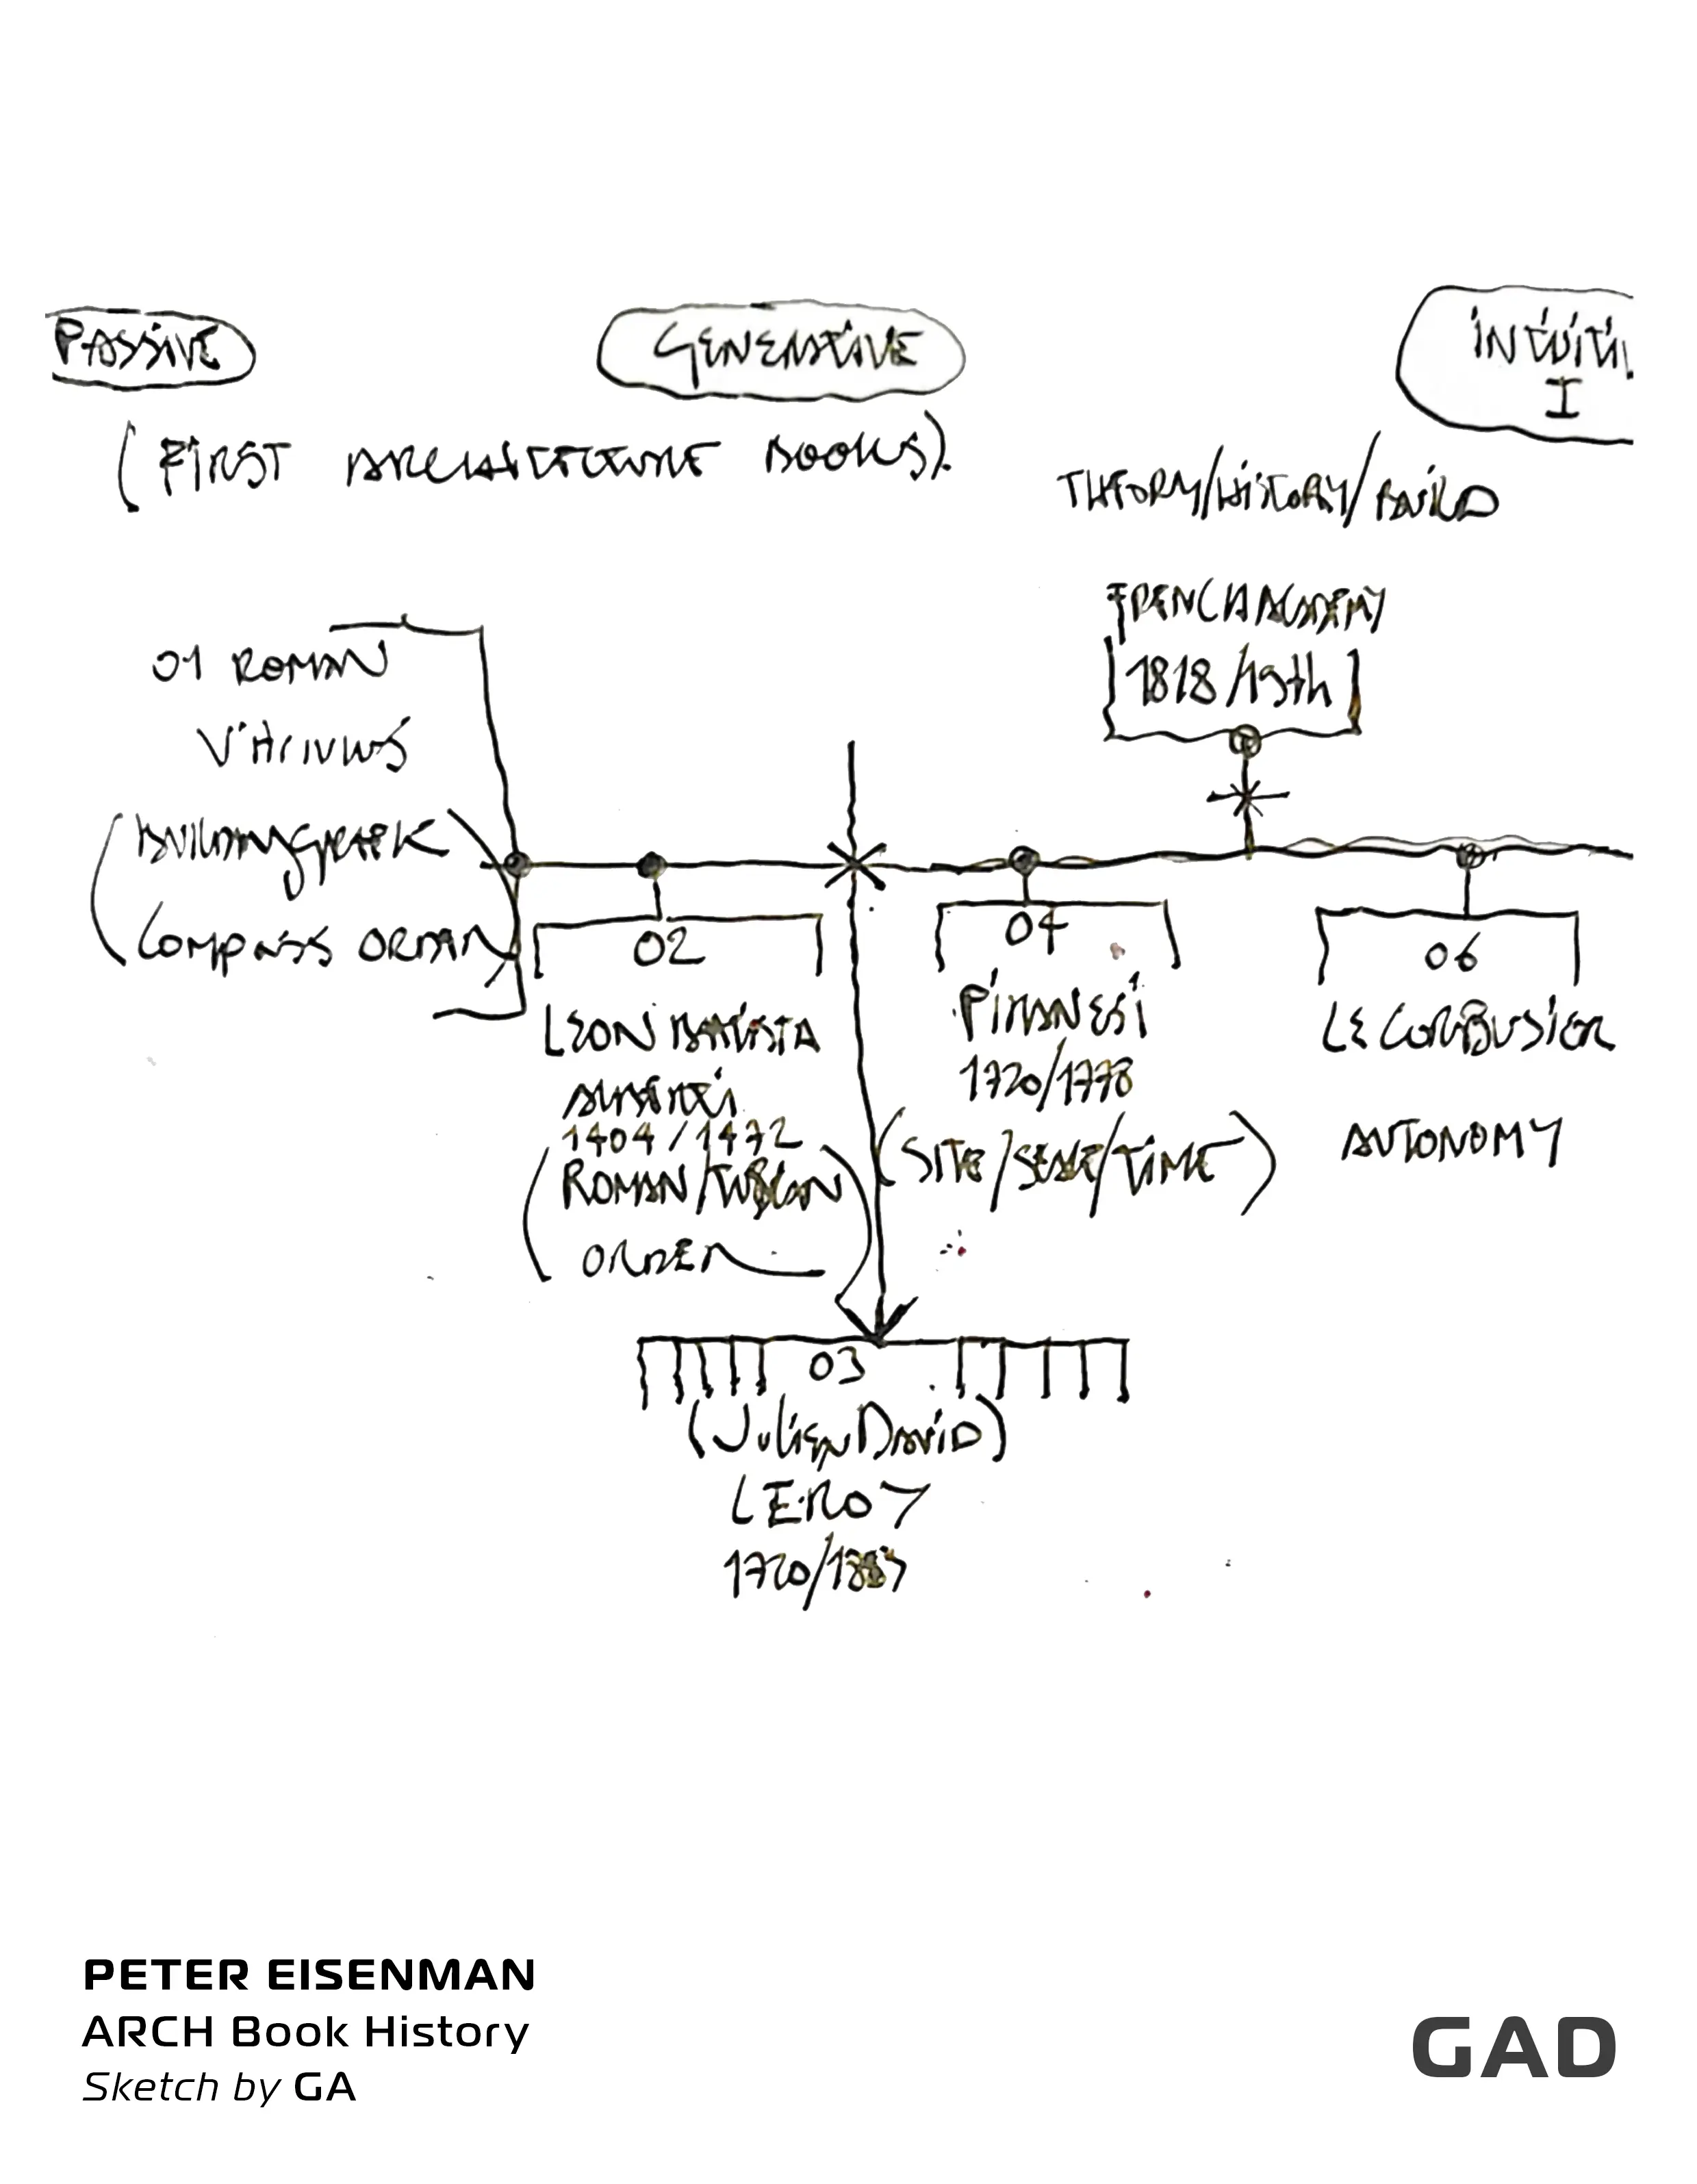 PASSIVE
GENERATIVE
I
(FIRST ARCHITECTURE BOOKS)
THEORY/HISTORY/BUILD
FRENCH ACADEMY
1818/19th
01 ROMAN
02
LEON BATISTA
ALBERTI
1404/1472
ROMAN/TUSCAN
ORDER
04
PIRANESI
1720/1778
(SITE/SCALE/TIME)
06
LE CORBUSIER
AUTONOMY
03
(JULIEN DAVID)
LEROY
PETER EISENMAN
ARCH Book History
Sketch by GA
GAD